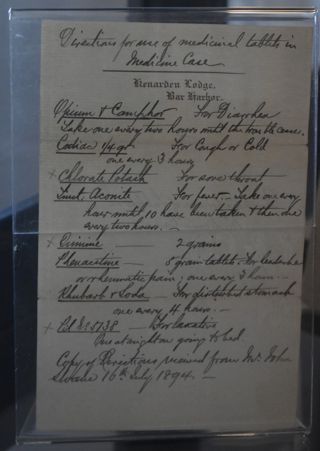 Directions for use of medicinal tablets in
Medicine Case
Kenarden Lodge,
Bar Harbor.
Opium & Camphor For Diarrhea
Take one every two hours until the
Codiac 1/4 gr For Cough or Cold
one every 3 hours
x Chlorate Potash For sore throat
Tinct. Aconite For fever – Take one every
hour until 10 have been taken & then one
every two hours. –
x Quinine – 2 grains
Phenacetine – 5 grain tablets – for headache
or rheumatic pain; one every 3 hours –
Rhubarb & Soda – For disturbed stomach
one every 4 hours. –
x 5738 – For laxative
One at night on going to bed.
Copy of Directions received from Mr. John
Sloane 16th July 1894. –